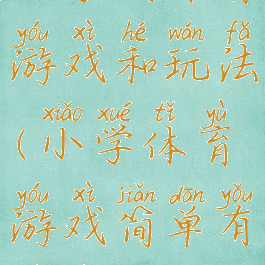 yóu xì hé wán fǎ
游戏和玩法
xiǎo xué tǐ yù
(小学体育
yóu xì jiǎn dān yǒu
游戏简单有